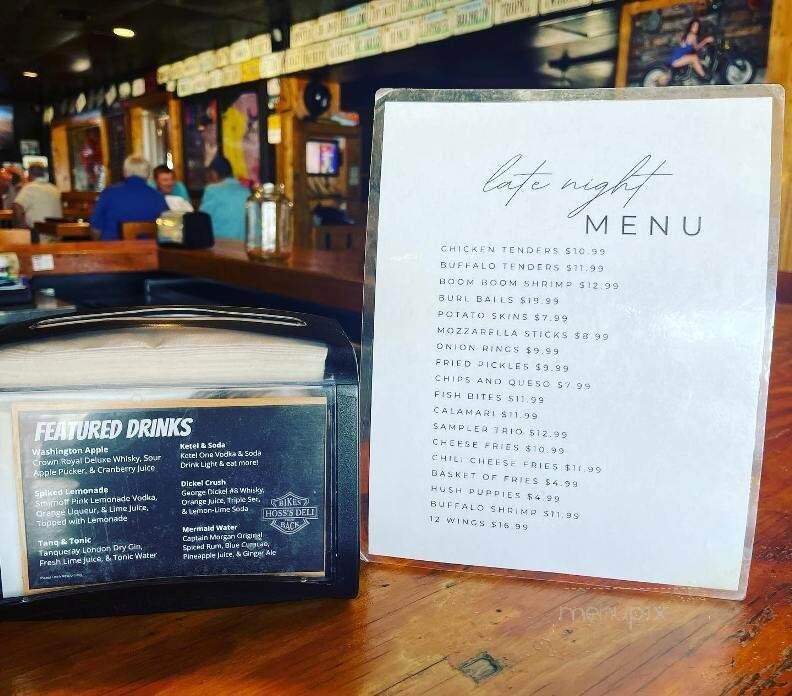 late night
MENU
CHICKEN TENDERS $10.99
BUFFALO TENDERS $11.99
BOOM BOOM SHRIMP $12.99
BURL BALLS $19.99
POTATO SKINS $7.99
MOZZARELLA STICKS $8.99
ONION RINGS $9.99
FRIED PICKLES $9.99
CHIPS AND QUESO $7.99
FISH BITES $11.99
CALAMARI $11.99
SAMPLER TRIO $12.99
CHEESE FRIES $10.99
CHILI CHEESE FRIES $11.99
BASKET OF FRIES $4.99
HUSH PUPPIES $4.99
BUFFALO SHRIMP $11.99
12 WINGS $16.99
FEATURED DRINKS
Washington Apple
Crown Royal Deluxe Whisky, Sour
Apple Pucker, & Cranberry Juice
Spiked Lemonade
Smirnoff Pink Lemonade Vodka,
Orange Liqueur, & Lime Juice,
Topped with Lemonade
Tanq & Tonic
Tanqueray London Dry Gin,
Fresh Lime Juice, & Tonic Water
Ketel & Soda
Ketel One Vodka & Soda
Drink Light & eat more!
Dickel Crush
George Dickel #8 Whisky,
Orange Juice, Triple Sec,
& Lemon-Lime Soda
Mermaid Water
Captain Morgan Original
Spiced Rum, Blue Curacao,
Pineapple Juice, & Ginger Ale
BIKES
HOSS'S DELI
BACK
menupix